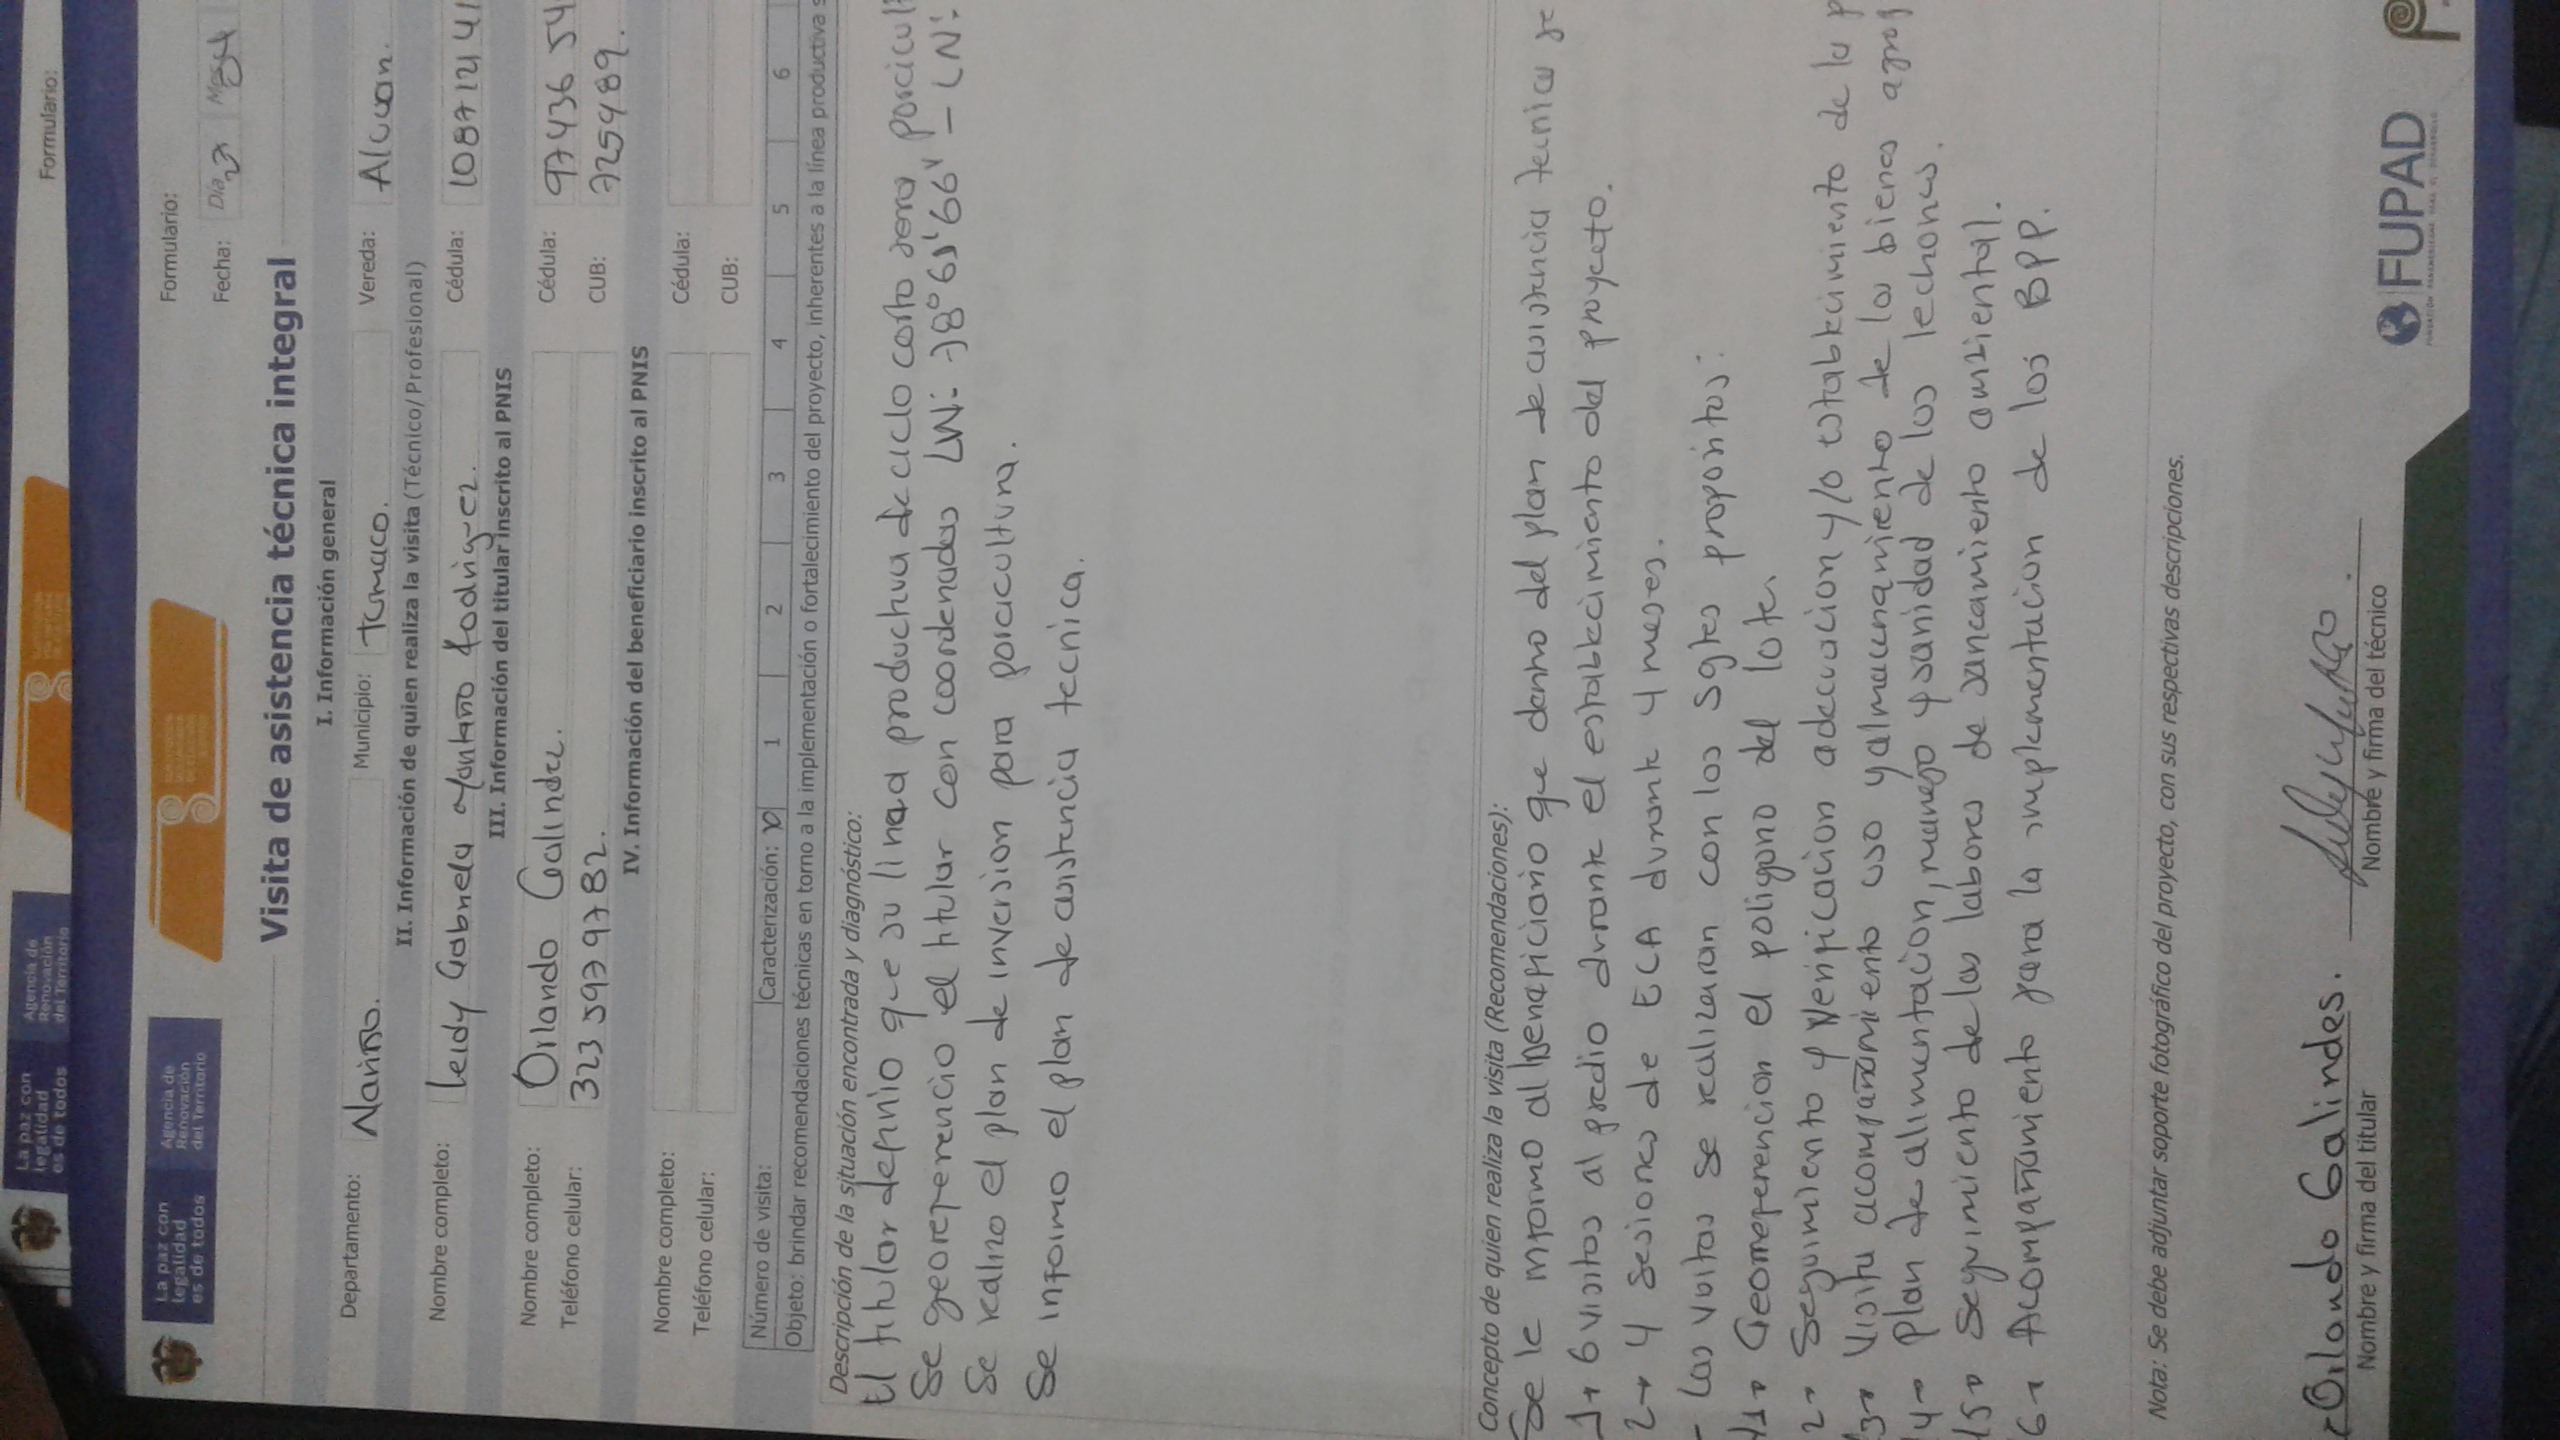 Formulario:
La paz con legalidad es de todos
Agencia de Renovación del Territorio
La paz con legalidad es de todos
Agencia de Renovación del Territorio
Formulario:
Fecha: Día 23 Mes
Visita de asistencia técnica integral
I. Información general
Departamento: Nariño. Municipio: Tumaco. Vereda:
II. Información de quien realiza la visita (Técnico/Profesional)
Nombre completo: Leidy Gabriela Montaño Rodriguez. Cédula: 10871241
III. Información del titular inscrito al PNIS
Nombre completo: Orlando Galindez. Cédula: 9743654
Teléfono celular: 3235979782. CUB: 7259489.
IV. Información del beneficiario inscrito al PNIS
Nombre completo: Cédula:
Teléfono celular: CUB:
Número de visita: Caracterización: X 1 2 3 4 5 6
Objeto: brindar recomendaciones técnicas en torno a la implementación o fortalecimiento del proyecto, inherentes a la línea productiva s
Descripción de la situación encontrada y diagnóstico:
El titular definio que su linea productiva de ciclo corto sera porcicult
Se georeferencio el titular con coordenadas
Se realizo el plan de inversion para porcicultura.
Se informo el plan de asistencia tecnica.
Concepto de quien realiza la visita (Recomendaciones):
Se le informo al beneficiario que dentro del plan de asistencia tecnica se
1→ 6 visitas al predio durante el establecimiento del proyecto.
2→ 4 sesiones de ECA durante 4 meses.
- las visitas se realizaran con los sgtes propositos:
1→ Georreferencion el poligono del lote.
2→ Seguimiento y Verificacion adecuacion y/o establecimiento de la p
3→ Visita acompañamiento uso y almacenamiento de los bienes agrop
4→ Plan de alimentacion, manejo y sanidad de los lechones.
5→ Seguimiento de las labores de saneamiento ambiental.
6→ Acompañamiento para la implementacion de los BPP.
Nota: Se debe adjuntar soporte fotográfico del proyecto, con sus respectivas descripciones.
Orlando Galindes.
Nombre y firma del titular
Nombre y firma del técnico
FUPAD